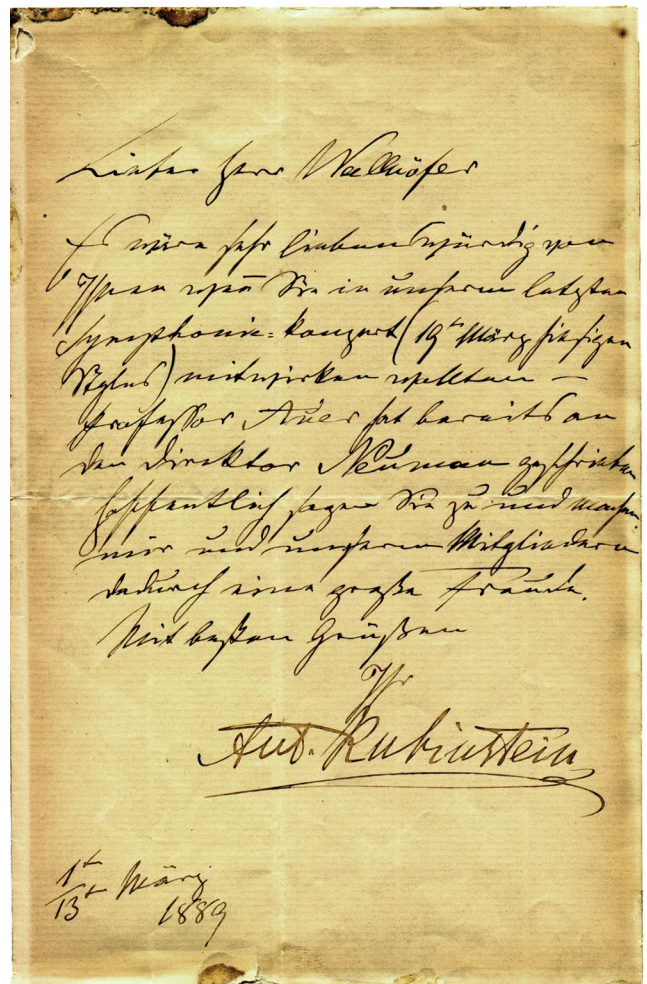 Lieber Herr Wallnöfer
Es wäre sehr liebenswürdig von
Ihnen wen̄ Sie in unserem letzten
Symphonie=Konzert (19ten März hiesigen
Styles) mitwirken wollten —
Professor Auer hat bereits an
den Direktor Neuman geschrieben
hoffentlich sagen Sie zu und machen
mir und unseren Mitgliedern
dadurch eine große Freude.
Mit besten Grüßen
Ihr
Ant. Rubinstein
1ten
13ten März
1889